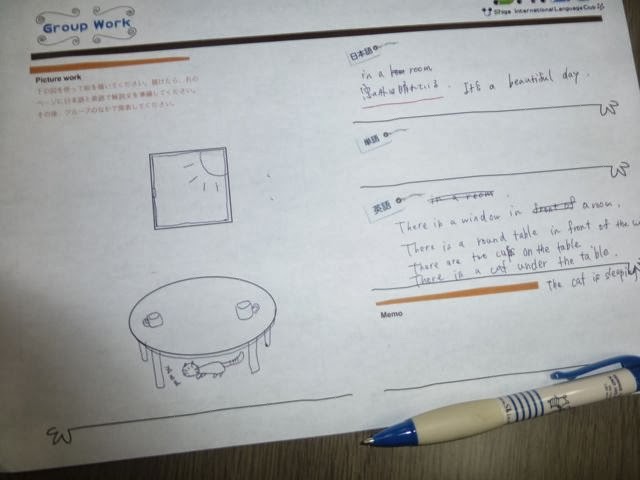 Group Work
Shiga International Language Club
Picture work
下の図を使って絵を描いてください。描けたら、右の
ページに日本語と英語で解説文を準備してください。
その後、グループのなかで発表してください。
日本語
in a room
窓の外は晴れている. It's a beautiful day.
単語
英語
in a room.
There is a window in front of a room.
There is a round table in front of the
There are two cups on the table.
There is a cat under the table.
The cat is sleeping
Memo